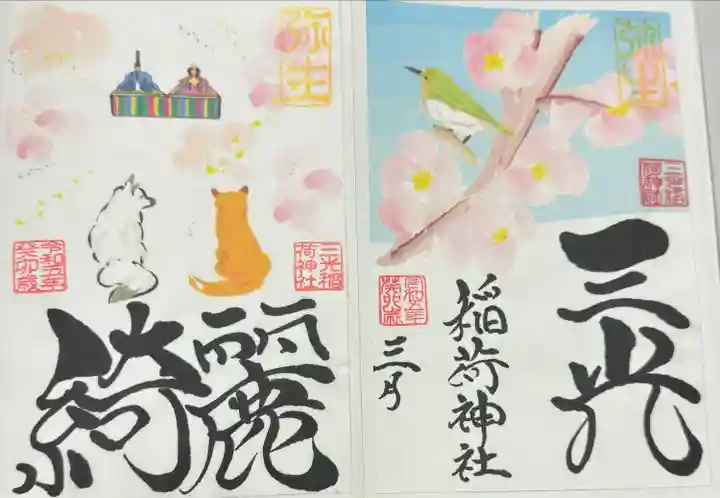 弥生
三光稲
荷神社
令和五年
癸卯歳
綺麗
弥生
三光稲
荷神社
三光
稲荷神社
三月